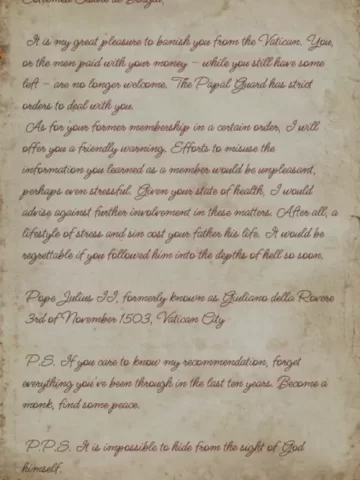 It is my great pleasure to banish you from the Vatican. You,
or the men paid with your money – while you still have some
left – are no longer welcome. The Papal Guard has strict
orders to deal with you.
As for your former membership in a certain order, I will
offer you a friendly warning. Efforts to misuse the
information you learned as a member would be unpleasant,
perhaps even stressful. Given your state of health, I would
advise against further involvement in these matters. After all, a
lifestyle of stress and sin cost your father his life. It would be
regrettable if you followed him into the depths of hell so soon.
Pope Julius II, formerly known as Giuliano della Rovere
3rd of November 1503, Vatican City
P.S. If you care to know my recommendation, forget
everything you've been through in the last ten years. Become a
monk, find some peace.
P.P.S. It is impossible to hide from the sight of God
himself.